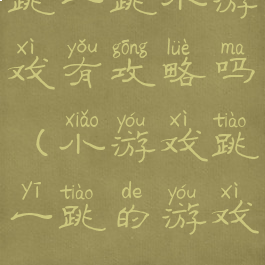 跳一跳小游
xì yǒu gōng lüè ma
戏有攻略吗
xiǎo yóu xì tiào
(小游戏跳
yī tiào de yóu xì
一跳的游戏